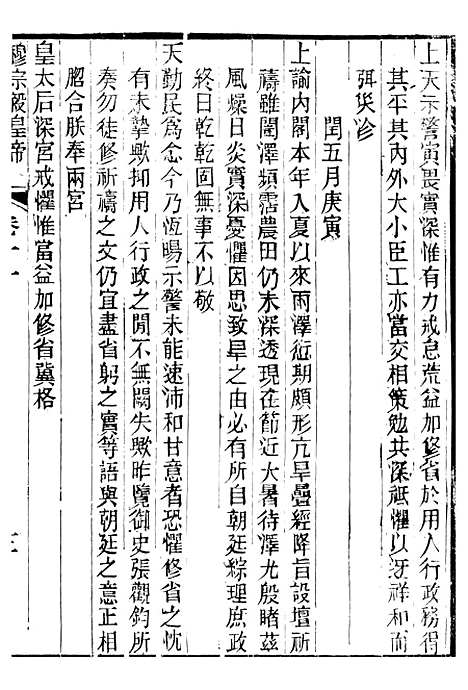 上天示警寅畏實深惟有力戒怠荒益加修省於用人行政務得
其平其內外大小臣工亦當交相策勉共深祗懼以迓祥和而
弭災沴
閏五月庚寅
上諭內閣本年入夏以來雨澤衍期頗形亢旱疊經降旨設壇祈
禱雖閒澤頻霑農田仍未深透現在節近大暑待澤尤殷睹茲
風燥日炎實深憂懼因思致旱之由必有所自朝廷綜理庶政
終日乾乾固無事不以敬
天勤民爲念今乃恆暘示警未能速沛和甘意者恐懼修省之忱
有未摯歟抑用人行政之閒不無闕失歟昨覽御史張觀鈞所
奏勿徒修祈禱之文仍宜盡省躬之實等語與朝廷之意正相
脗合朕奉兩宮
皇太后深宮戒懼惟當益加修省冀格
穆宗毅皇帝 卷十一